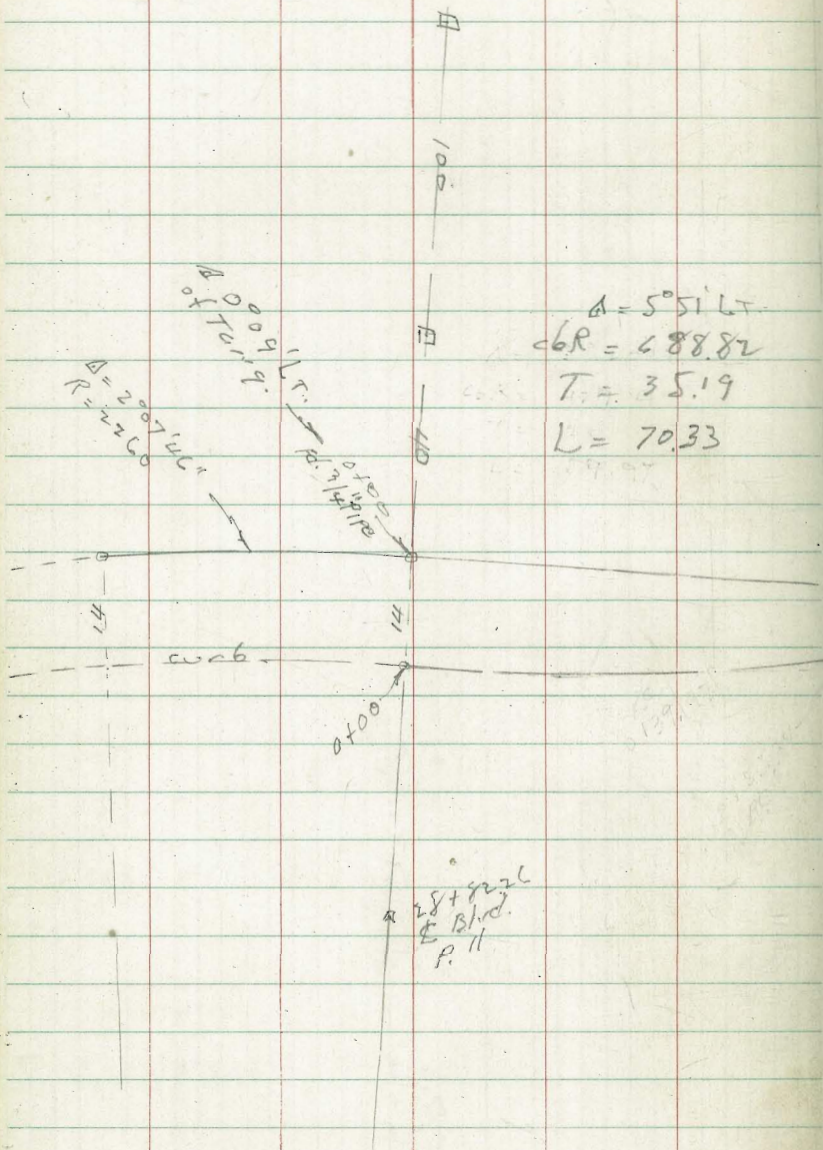 100
Δ 0°09' LT.
of Tang.
Δ = 5°51' LT.
cbR = 688.82
T = 35.19
L = 70.33
Δ = 2°07'46"
R = 2260
40
0+00
3/4" pipe
14
14
curb
0+00
28+82.26
℄ Blvd.
P. 11